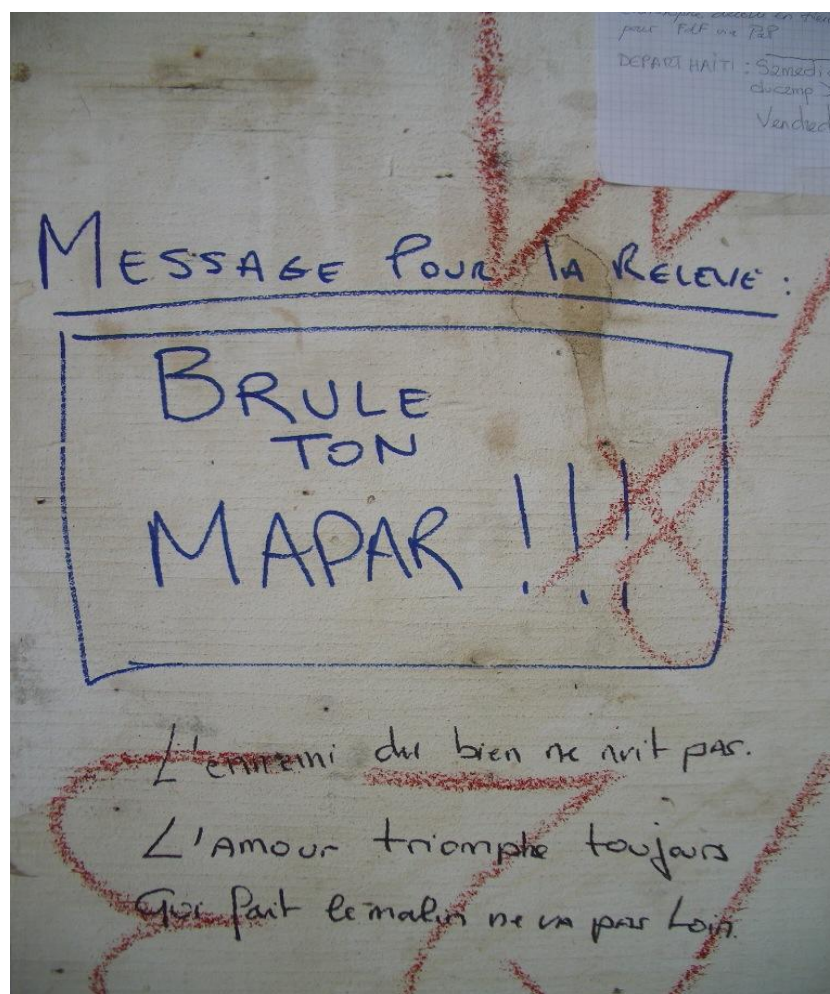 pour FdF
DEPART HAÏTI : Samedi
ducamp
MESSAGE POUR LA RELEVE :
BRULE
TON
MAPAR !!!
L'ennemi du bien ne nuit pas.
L'AMOUR triomphe toujours
Qui fait le malin ne va pas Loin.